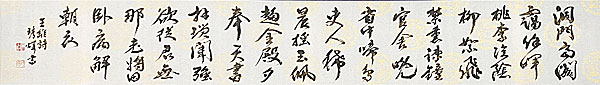 洞門高閣
靄餘暉
桃李陰陰
柳絮飛
禁裏疎鐘
官舍晚
省中啼鳥
吏人稀
晨搖玉佩
趨金殿夕
奉天書
拜瑣闈強
欲從君無
那老將因
臥病解
朝衣
王維詩
書